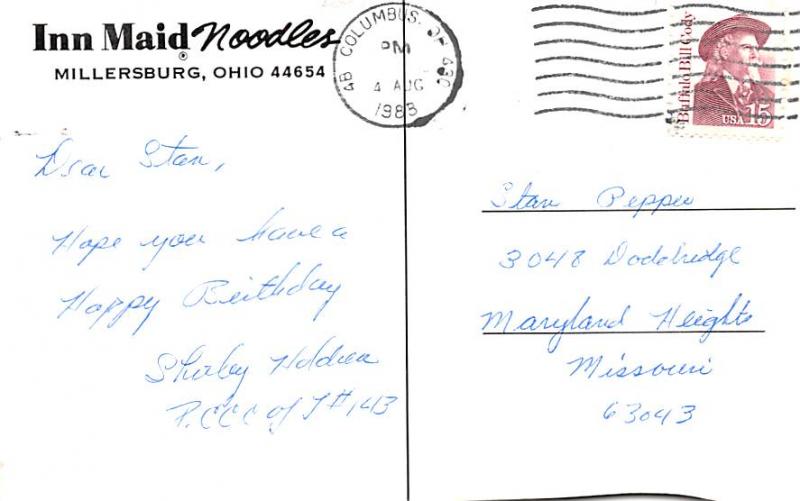 Inn Maid Noodles
®
MILLERSBURG, OHIO 44654
COLUMBUS, OH 430
PM
4 AUG
1988
Buffalo Bill Cody
USA 15
Dear Stan,
Hope you have a
Happy Birthday
Shirley Holdren
P.C.C.C of I #143
Stan Pepper
3048 Doddridge
Maryland Heights
Missouri
63043